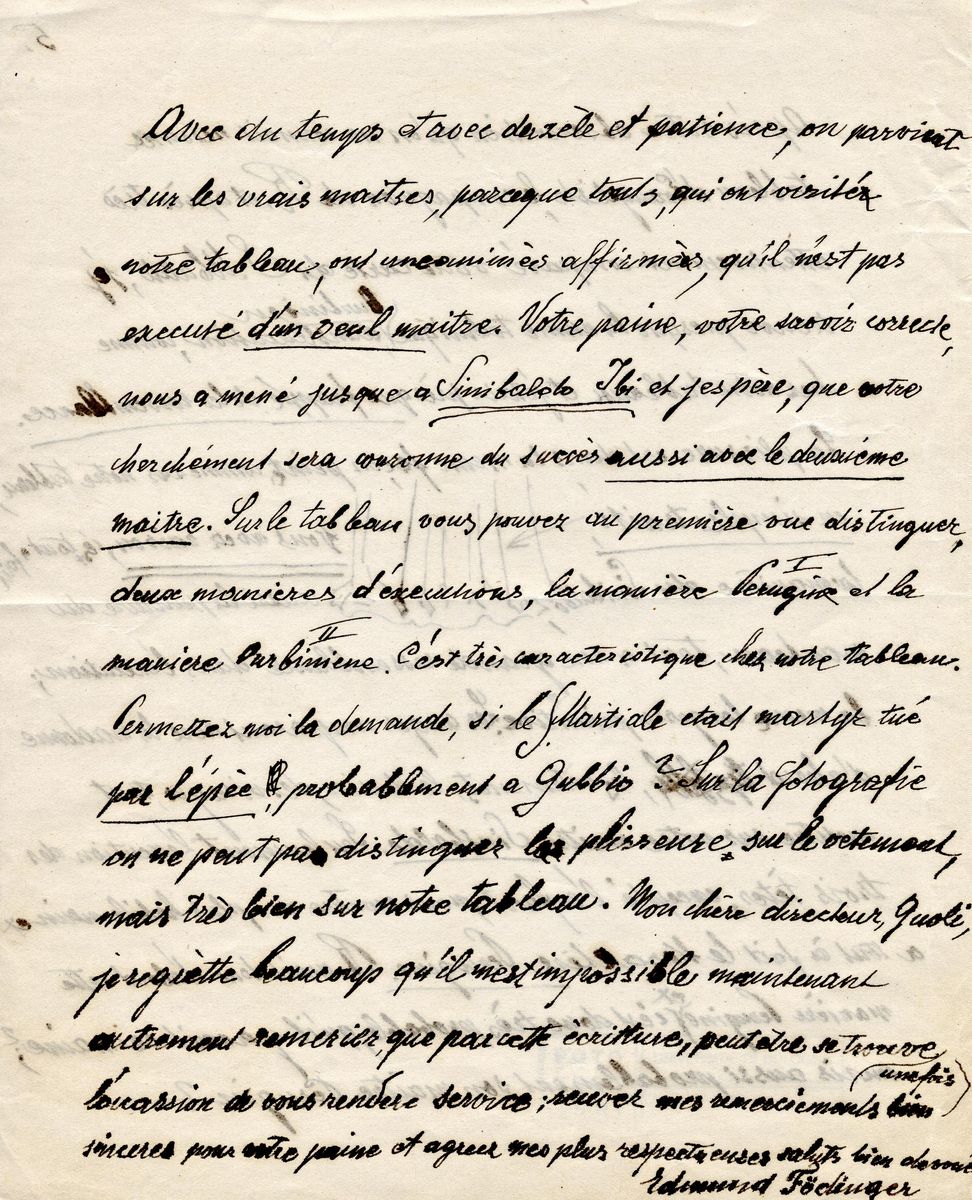 Avec du temps et avec du zèle et patience, on parvient
sur les vrais maitres, parceque touts, qui ont visitér
notre tableau, ont uneanimès affirmès, qu'il n'est pas
executé d'un seul maitre. Votre paine, votre savoir correcte,
nous a mené jusque a Sinibaldo Ibi et j'espère, que votre
cherchément sera couronne du succès aussi avec le deuxiéme
maitre. Sur le tableau vous pouvez au première vue distinguer,
deux manieres d'éxecutions, la manière I Perugine et la
maniere II Ourbiniene. C'est très caracteristique chez notre tableau.
Permettez moi la demande, si le S. Martiale etait martyr tué
par l'épèe, probablement a Gubbio? Sur la fotografie
on ne peut pas distinguer les plisseure, sur le vetement,
mais trés bien sur notre tableau. Mon chère directeur, Gnoli,
je regrètte beaucoup qu'il m'est impossible maintenant
autrement remerier, que par cette ècritture, peut etre se trouve
une fois
l'occassion de vous rendere service; recevez mes remerciements bien
sinceres pour votre paine et agreer mes plus respectueuses saluts bien devoué
Edmund Födinger